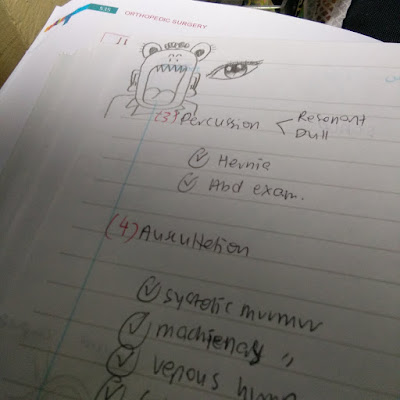 535 ORTHOPEDIC SURGERY
(3) Percussion < Resonant
Dull
Hernia
Abd exam.
(4) Auscultation
systolic murmur
machienary "
venous hum